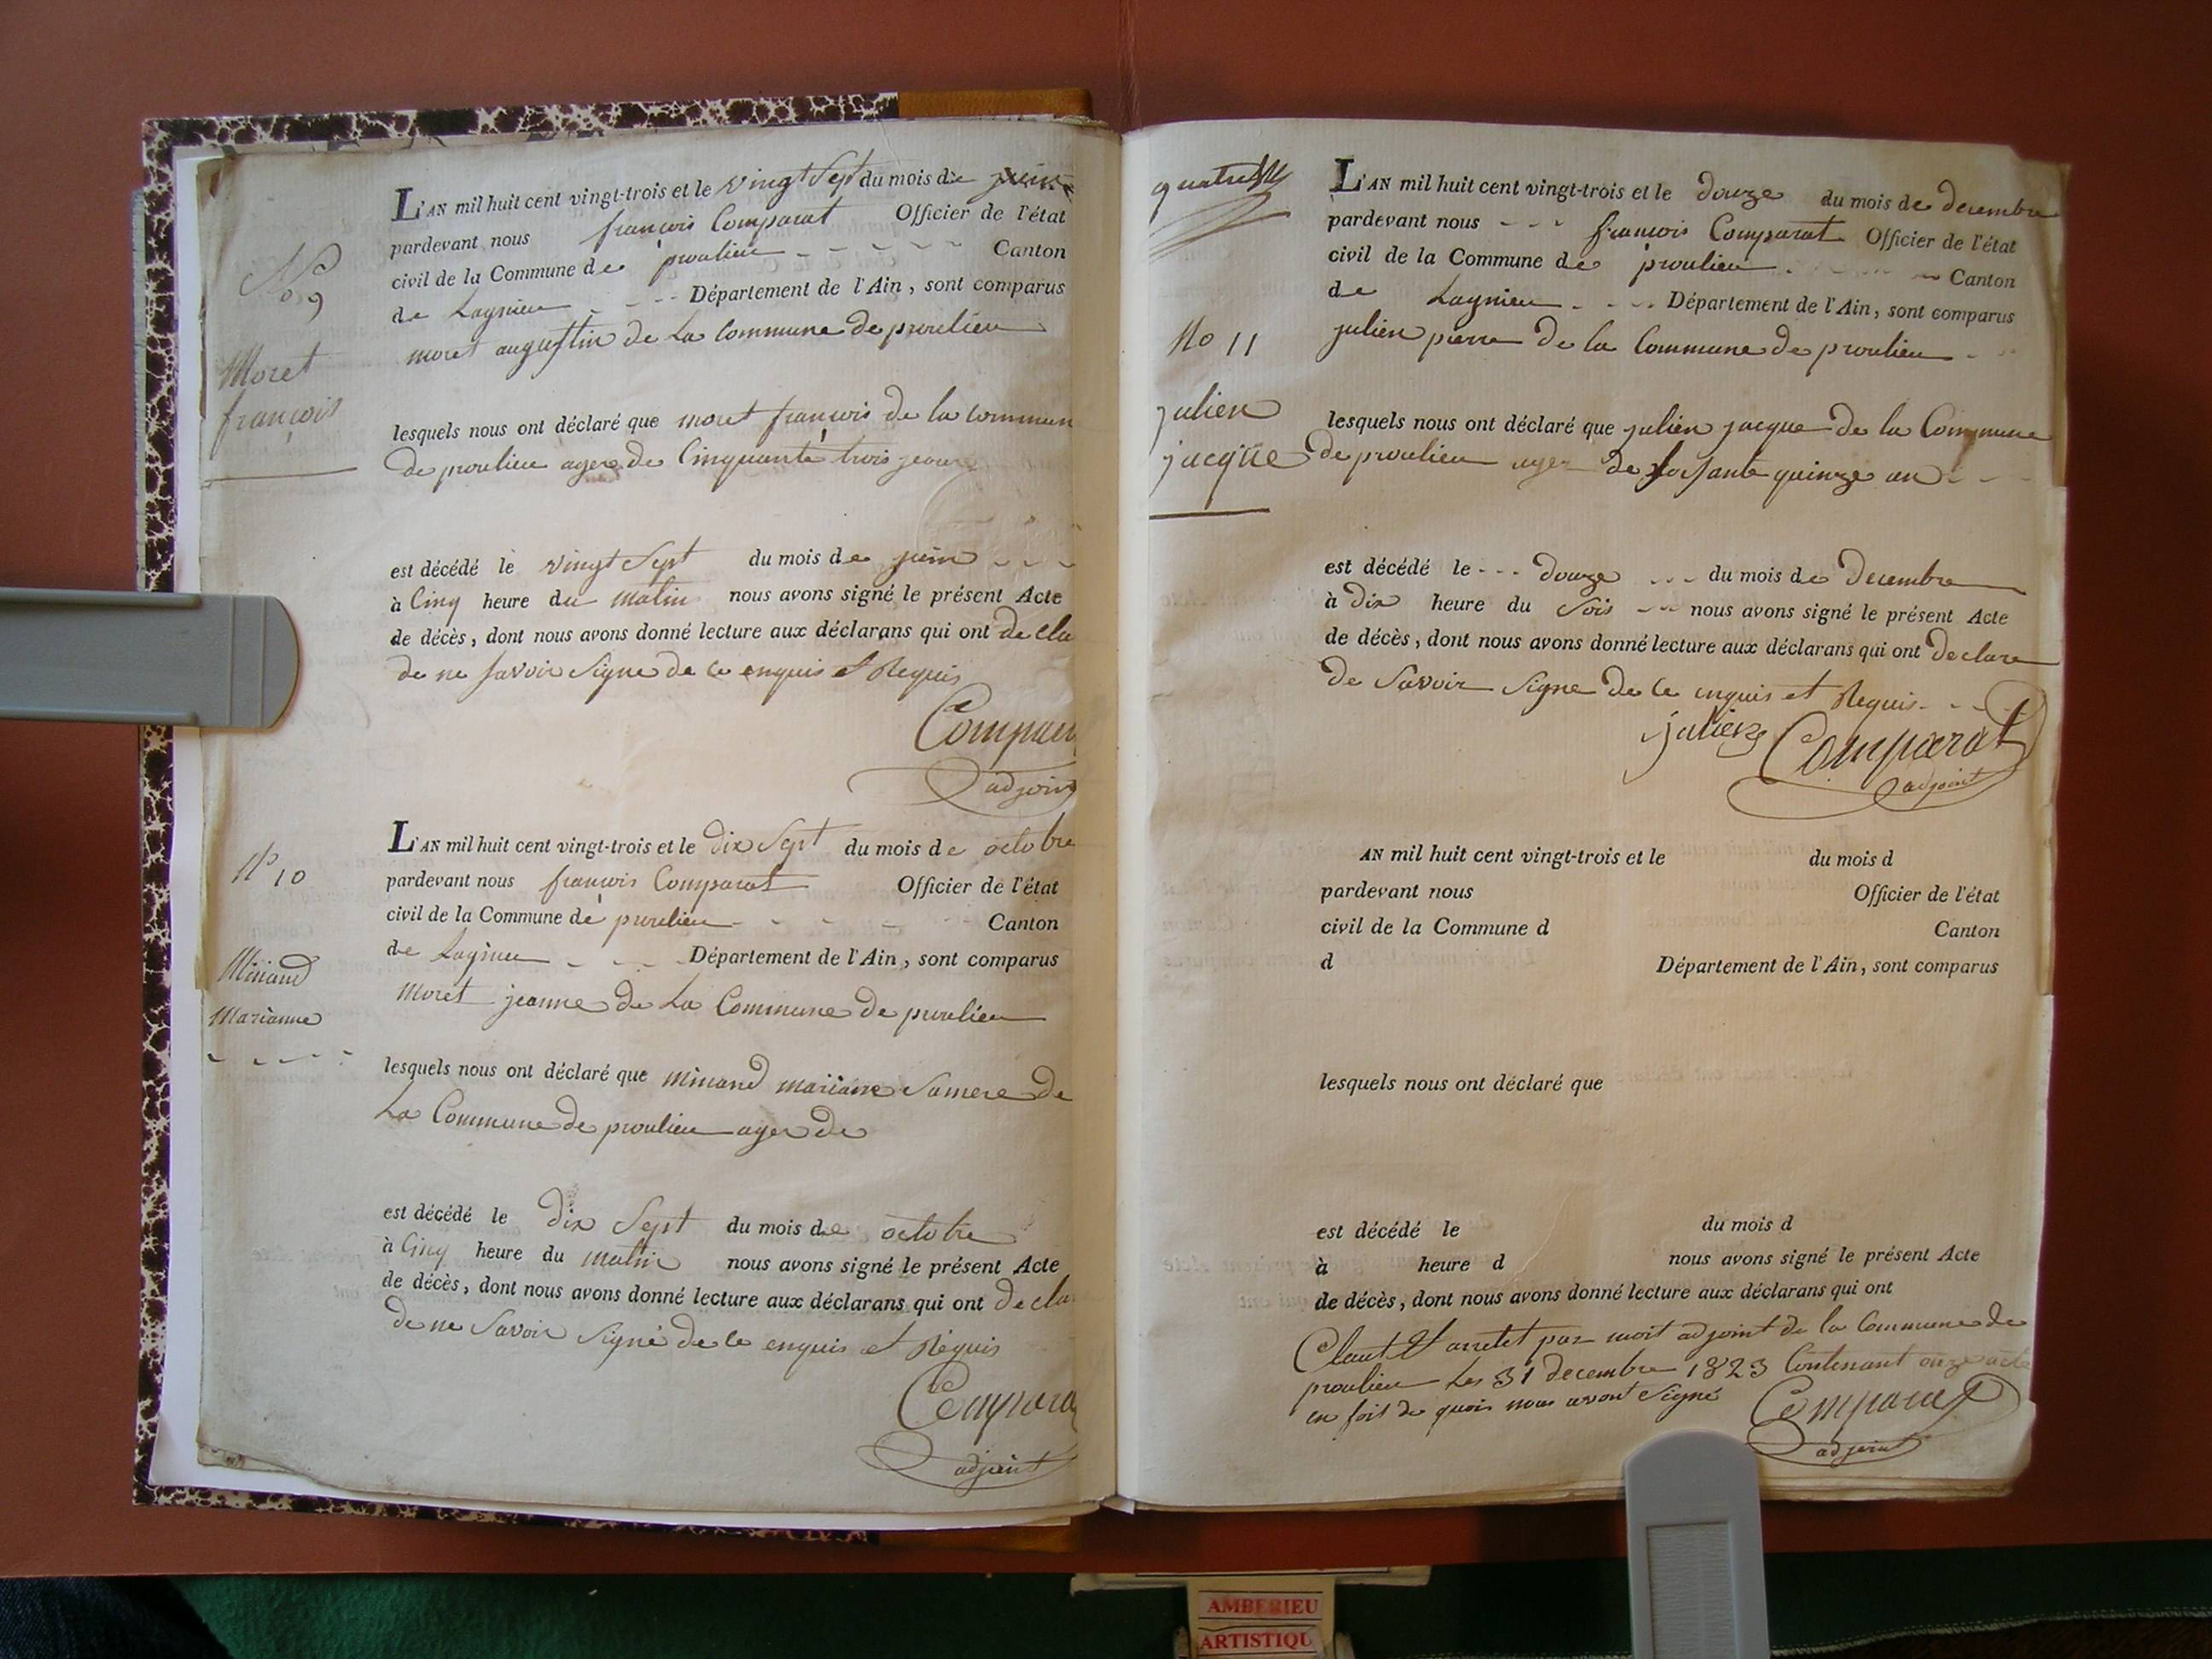 No 9
Moret
françois
L'AN mil huit cent vingt-trois et le vingt Sept du mois de juin
pardevant nous françois Comparat Officier de l'état
civil de la Commune de proulieu Canton
de Lagnieu Département de l'Ain, sont comparus
moret augustin de La Commune de proulieu
lesquels nous ont déclaré que moret françois de la commun
de proulieu ager de Cinquante trois jour
est décédé le vingt Sept du mois de juin
à Cinq heure du matin nous avons signé le présent Acte
de décès, dont nous avons donné lecture aux déclarans qui ont de cla
de ne savoir Signe de ce enquis et Requis
Compara
adjoin
N° 10
Minand
Marianne
L'AN mil huit cent vingt-trois et le dix Sept du mois de octobre
pardevant nous françois Comparat Officier de l'état
civil de la Commune de proulieu Canton
de Lagnieu Département de l'Ain, sont comparus
Moret jeanne de La Commune de proulieu
lesquels nous ont déclaré que minand mariane Samere de
La Commune de proulieu ager de
est décédé le dix Sept du mois de octobre
à Cinq heure du matin nous avons signé le présent Acte
de décès, dont nous avons donné lecture aux déclarans qui ont De cla
de ne Savoir Signé de ce enquis et Requis
Compara
adjoint
No 11
julien
jacque
L'AN mil huit cent vingt-trois et le douze du mois de decembre
pardevant nous - - - françois Comparat Officier de l'état
civil de la Commune de proulieu Canton
de Lagnieu Département de l'Ain, sont comparus
julien pierre de la Commune de proulieu
lesquels nous ont déclaré que julien jacque de la Commune
de proulieu ager de soisante quinze an
est décédé le - - - douze - - - du mois de Decembre
à dix heure du Sois nous avons signé le présent Acte
de décès, dont nous avons donné lecture aux déclarans qui ont Declare
de Savoir Signe de ce enquis et Requis
julien Comparat
adjoint
AN mil huit cent vingt-trois et le du mois d
pardevant nous Officier de l'état
civil de la Commune d Canton
d Département de l'Ain, sont comparus
lesquels nous ont déclaré que
est décédé le du mois d
à heure d nous avons signé le présent Acte
de décès, dont nous avons donné lecture aux déclarans qui ont
Claut Et arretet par moit adjoint de la Commune de
proulieu Les 31 decembre 1823 Contenant onze acte
en foit de quois nous avont Signé Comparat
adjoint
AMBERIEU
ARTISTIQU